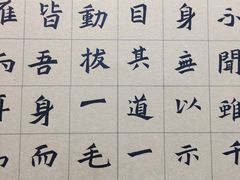 聞雖千
身無以示
目其道一
動拔一毛
皆吾身而